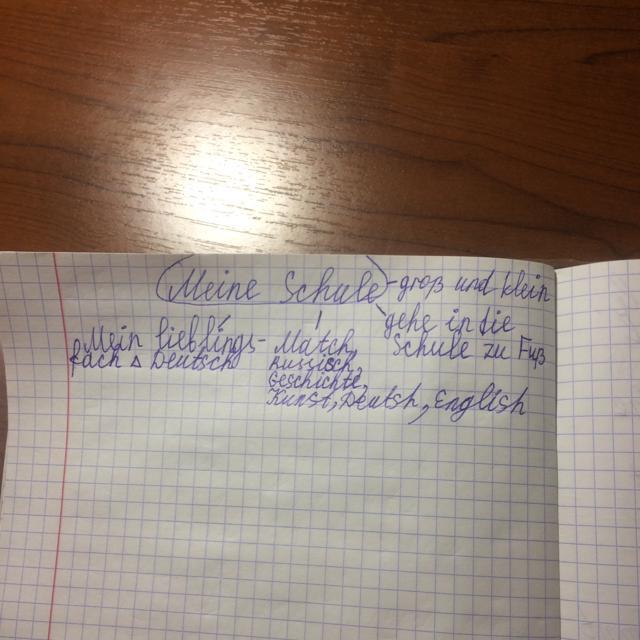 Meine Schule
- groß und klein
gehe in die
Schule zu Fuß
Mein lieblings-
fach Deutsch
Match,
Russisch,
Geschichte,
Kunst, Deutsh, English